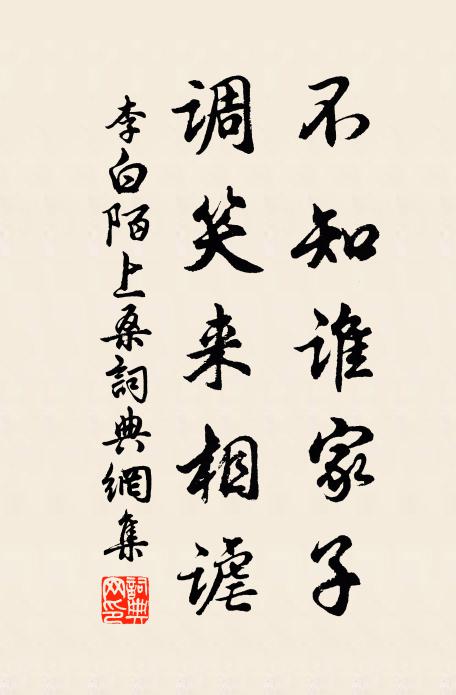 不知谁家子
调笑来相谑
李白陌上桑詞典網集
詞典网印